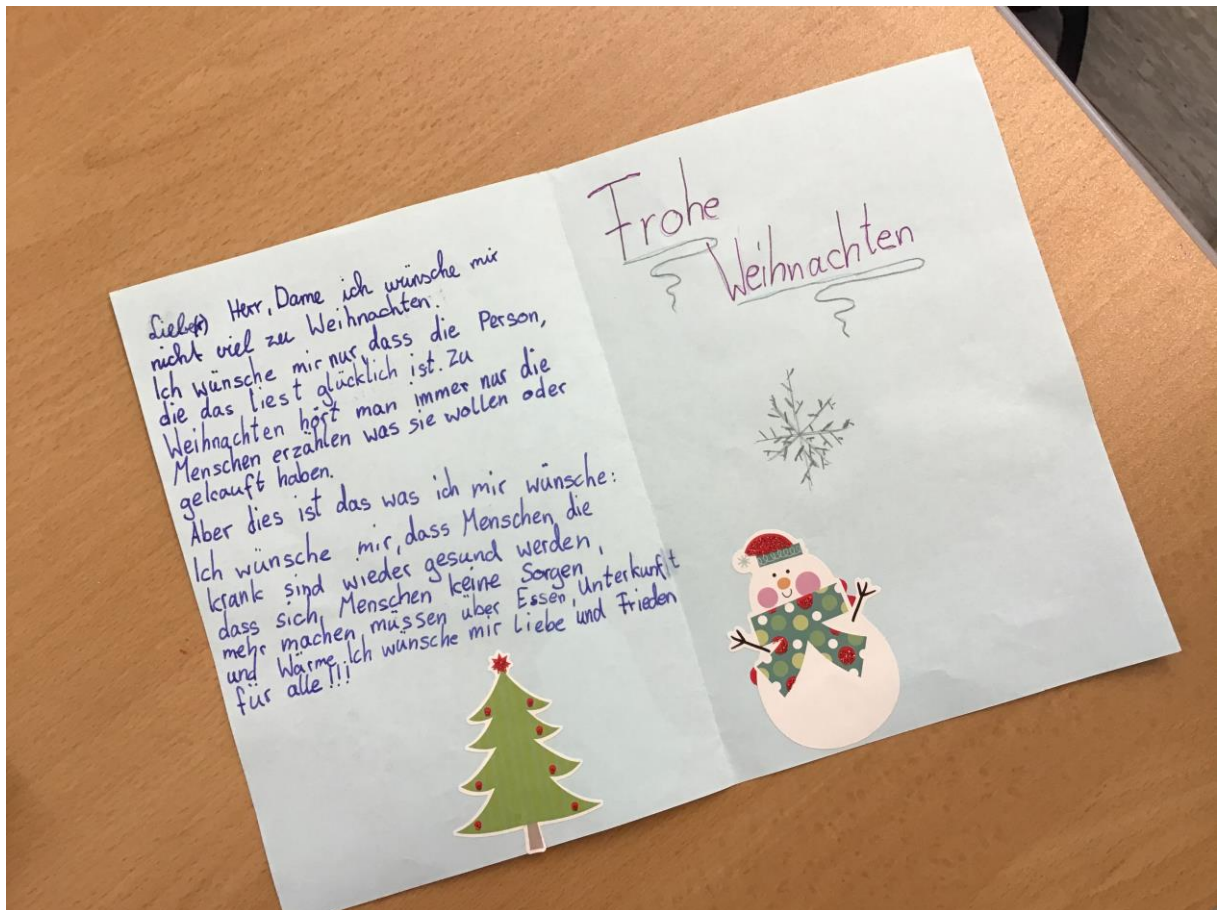 Liebe(r) Herr, Dame ich wünsche mir
nicht viel zu Weihnachten.
Ich wünsche mir nur, dass die Person,
die das liest glücklich ist. Zu
Weihnachten hört man immer nur die
Menschen erzählen was sie wollen oder
gekauft haben.
Aber dies ist das was ich mir wünsche:
Ich wünsche mir, dass Menschen, die
krank sind wieder gesund werden,
dass sich Menschen keine Sorgen
mehr machen müssen über Essen, Unterkunft
und Wärme. Ich wünsche mir Liebe und Frieden
für alle!!!
Frohe
Weihnachten